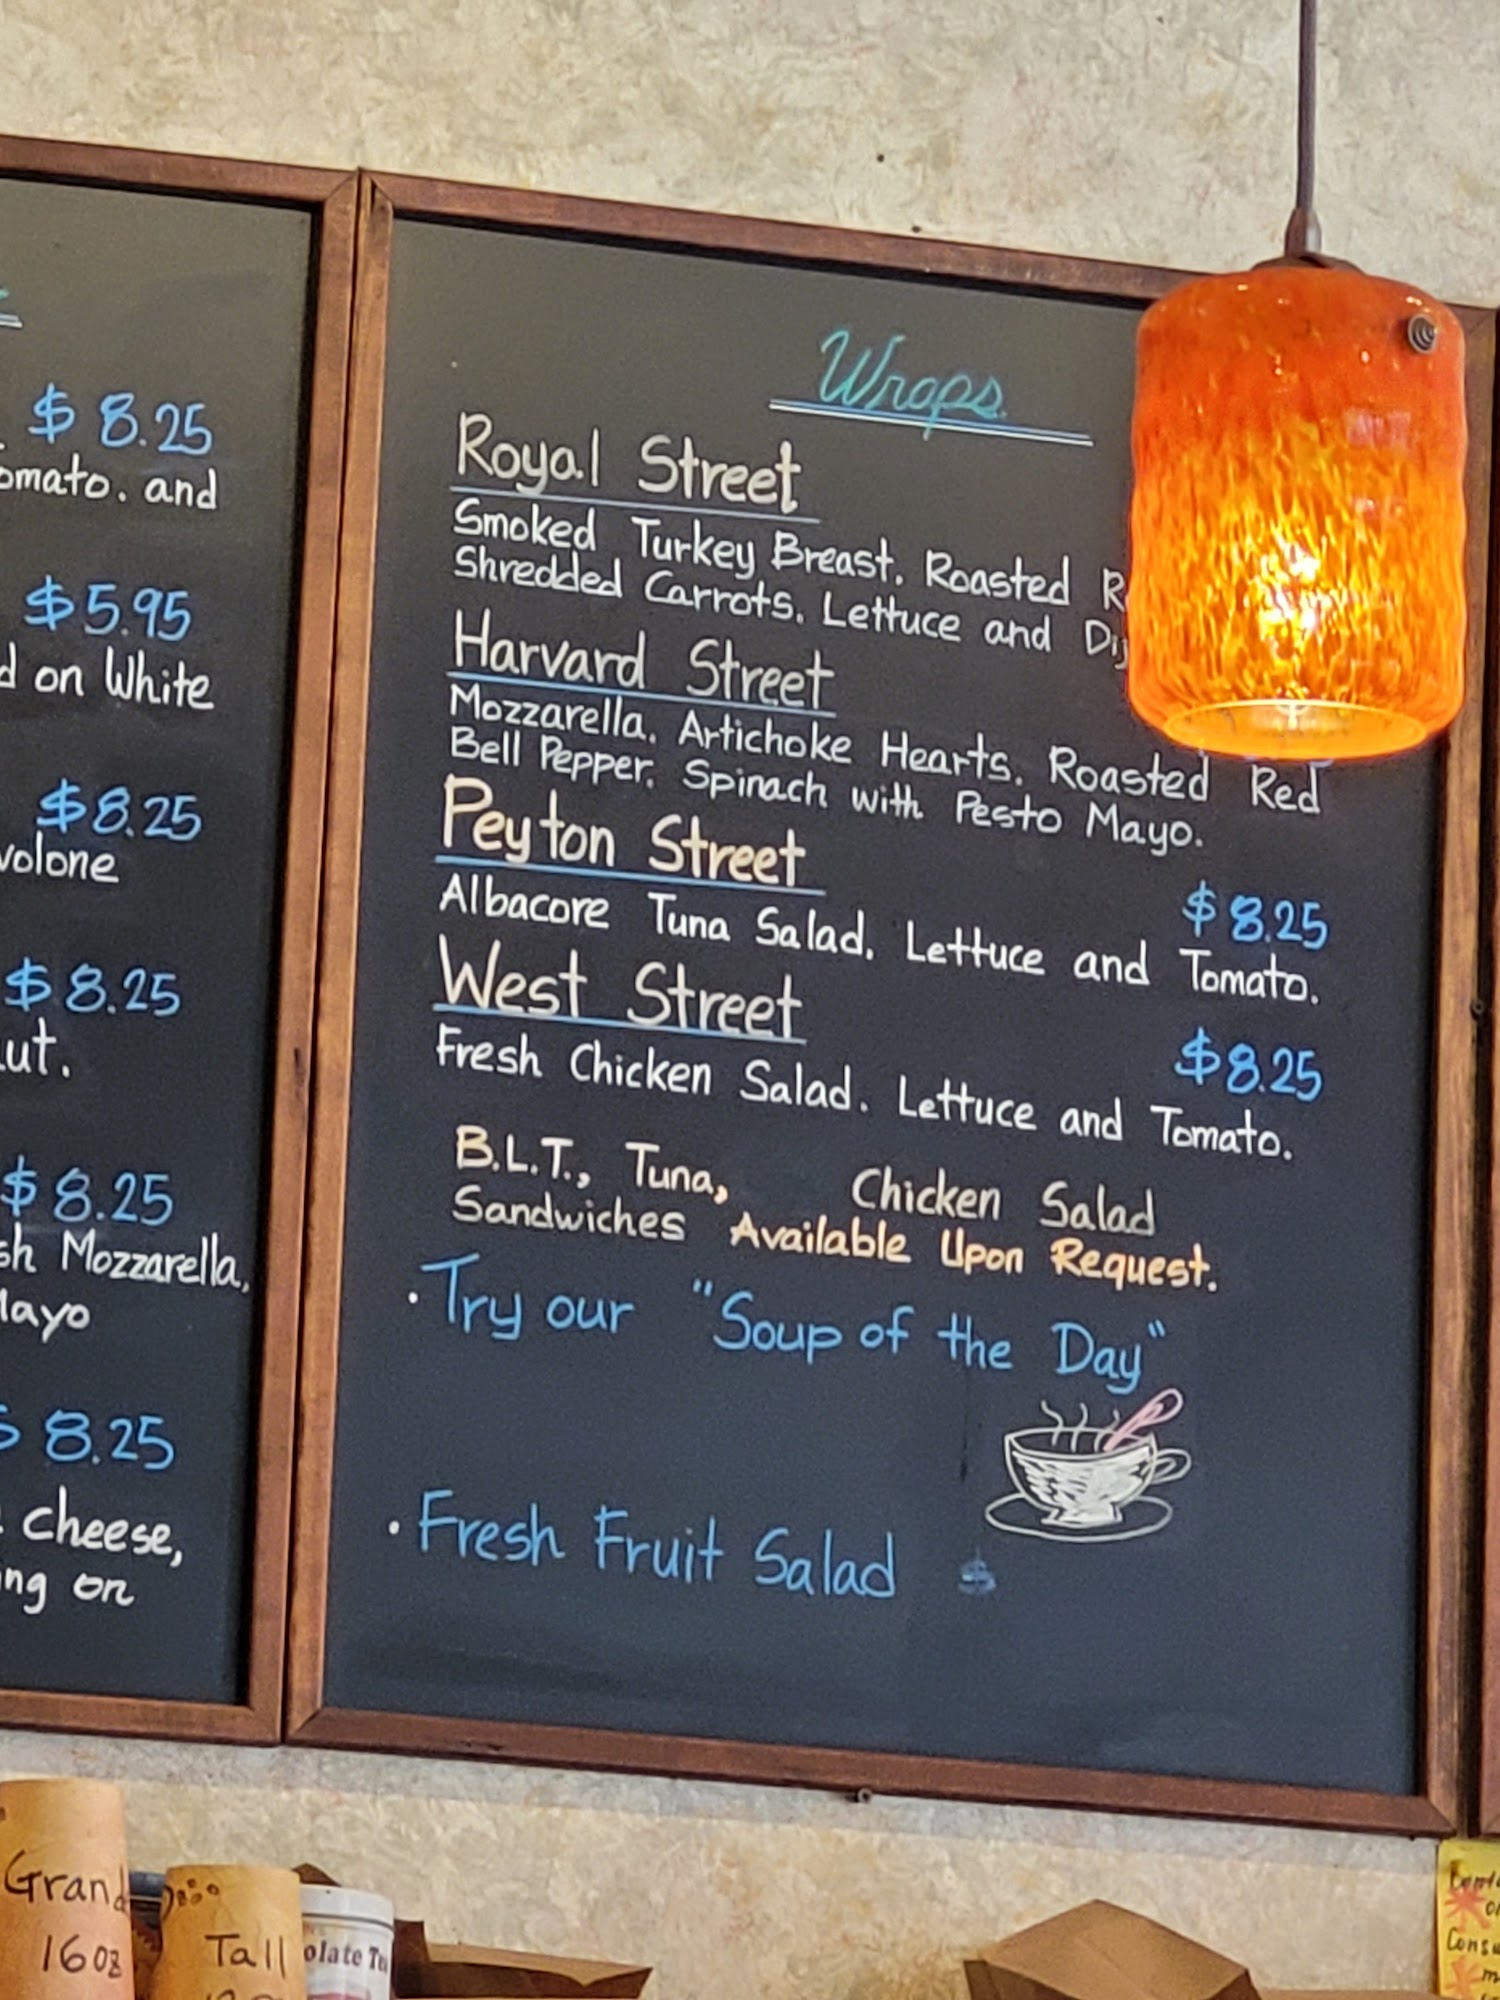 $ 8.25
and
$5.95
on White
$8.25
$ 8.25
$ 8.25
Mozzarella,
$ 8.25
cheese,
on
Wraps
Royal Street
Smoked Turkey Breast. Roasted
Shredded Carrots. Lettuce and
Harvard Street
Mozzarella. Artichoke Hearts. Roasted Red
Bell Pepper. Spinach with Pesto Mayo.
Peyton Street
$ 8.25
Albacore Tuna Salad. Lettuce and Tomato.
West Street
$8.25
Fresh Chicken Salad. Lettuce and Tomato.
B.L.T., Tuna, Chicken Salad
Sandwiches Available Upon Request.
· Try our "Soup of the Day"
· Fresh Fruit Salad $
16oz
Tall